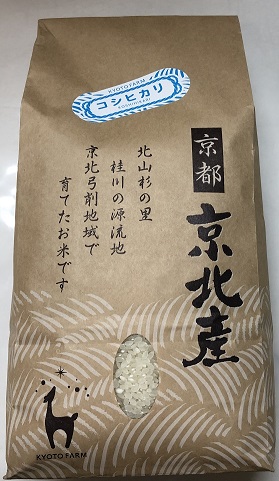 KYOTO FARM
コシヒカリ
KOSHIHIKARI
京都
京北産
北山杉の里
桂川の源流地
京北弓削地域で
育てたお米です
KYOTO FARM